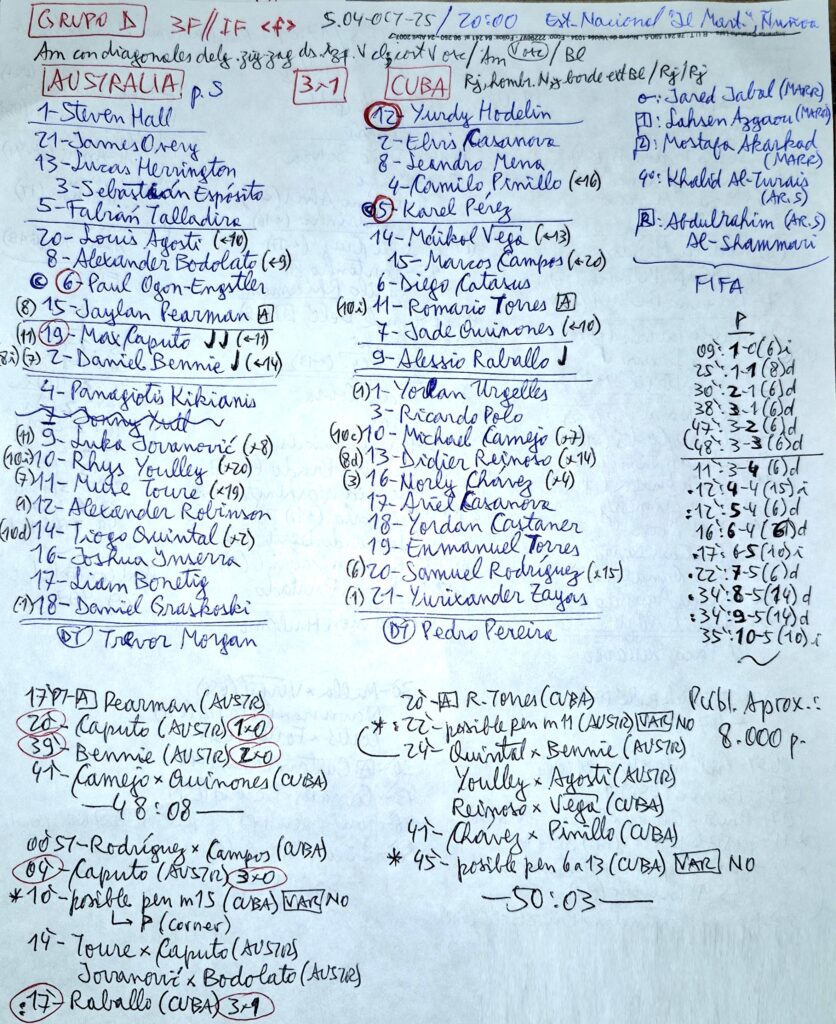 GRUPO D 3F//IF <f> S.04-OCT-25/20:00 Est. Nacional "Jl Mart.", Ñuñoa
Am con diagonales delg. zig zag ds. Azp. V clz cort Vosc/Am Vosc/Bl
AUSTRALIA p.S 3x1 CUBA Rj, hombr. Njs borde ext Bl/Rj/Rj
1-Steven Hall
21-James Overy
13-Lucas Herrington
3-Sebastián Espósito
5-Fabián Talladira
20-Louis Agosti (←10)
8-Alexander Bodolato (←9)
© 6-Paul Ogon-Engstler
(8) 15-Jaylan Pearman A
(11) 19-Max Caputo JJ (←11)
8i)(7) 2-Daniel Bennie J (←14)
4-Panagiotis Kikianis
(11) 9-Luka Jovanović (x8)
(10i) 10-Rhys Youlley (x20)
(7) 11-Mute Toure (x19)
(1) 12-Alexander Robinson
(10d) 14-Tiogo Quintal (x2)
16-Joshua Ynserra
17-Liam Bonetig
(1) 18-Daniel Graskoski
DT Trevor Morgan
12-Yurdy Hodelin
2-Elvis Casanova
8-Leandro Mena
4-Camilo Pinillo (←16)
© 5-Karel Pérez
14-Maikol Vega (←13)
15-Marcos Campos (←20)
6-Diego Catasus
(10.i) 11-Romario Torres A
7-Jade Quinones (←10)
9-Alessio Raballo J
(1) 1-Yordan Urgelles
3-Ricardo Polo
(10c) 10-Michael Camejo (x7)
(8d) 13-Didier Reinoso (x14)
(3) 16-Norly Chávez (x4)
17-Ariel Casanova
18-Yordan Castaner
19-Enmanuel Torres
(6) 20-Samuel Rodríguez (x15)
(1) 21-Yurixander Zayas
DT Pedro Pereira
o: Jared Jabal (MARR)
1: Lahsen Azgaou (MARR)
2: Mostafa Akarkad
(MARR)
4º: Khalid Al-Turais
(AR.S)
R: Abdulrahim (AR.S)
Al-Shammari
FIFA
P
09': 1-0(6)i
25': 1-1(8)d
30': 2-1(6)d
38': 3-1(6)d
47': 3-2(6)d
(48': 3-3(6)d
11': 3-4(6)d
.12': 4-4(15)i
:12': 5-4(6)d
16': 6-4(6)d
.17': 6-5(10)i
.22': 7-5(6)d
.34': 8-5(14)d
:34': 9-5(14)d
35': 10-5(10)i
17'07-A Pearman (AUSTR)
20-Caputo (AUSTR) 1x0
39-Bennie (AUSTR) 2x0
41-Camejo x Quinones (CUBA)
—48:08—
00'57-Rodríguez x Campos (CUBA)
04-Caputo (AUSTR) 3x0
*10-posible pen m15 (CUBA) VAR NO
↳ P (corner)
14-Toure x Caputo (AUSTR)
Jovanović x Bodolato (AUSTR)
:17-Raballo (CUBA) 3x1
20-A R. Torres (CUBA)
*:22-posible pen m11 (AUSTR) VAR NO
24-Quintal x Bennie (AUSTR)
Youlley x Agosti (AUSTR)
Reinoso x Vega (CUBA)
41-Chávez x Pinillo (CUBA)
*45-posible pen 6 a 13 (CUBA) VAR NO
—50:03—
Públ. Aprox.:
8.000 p.